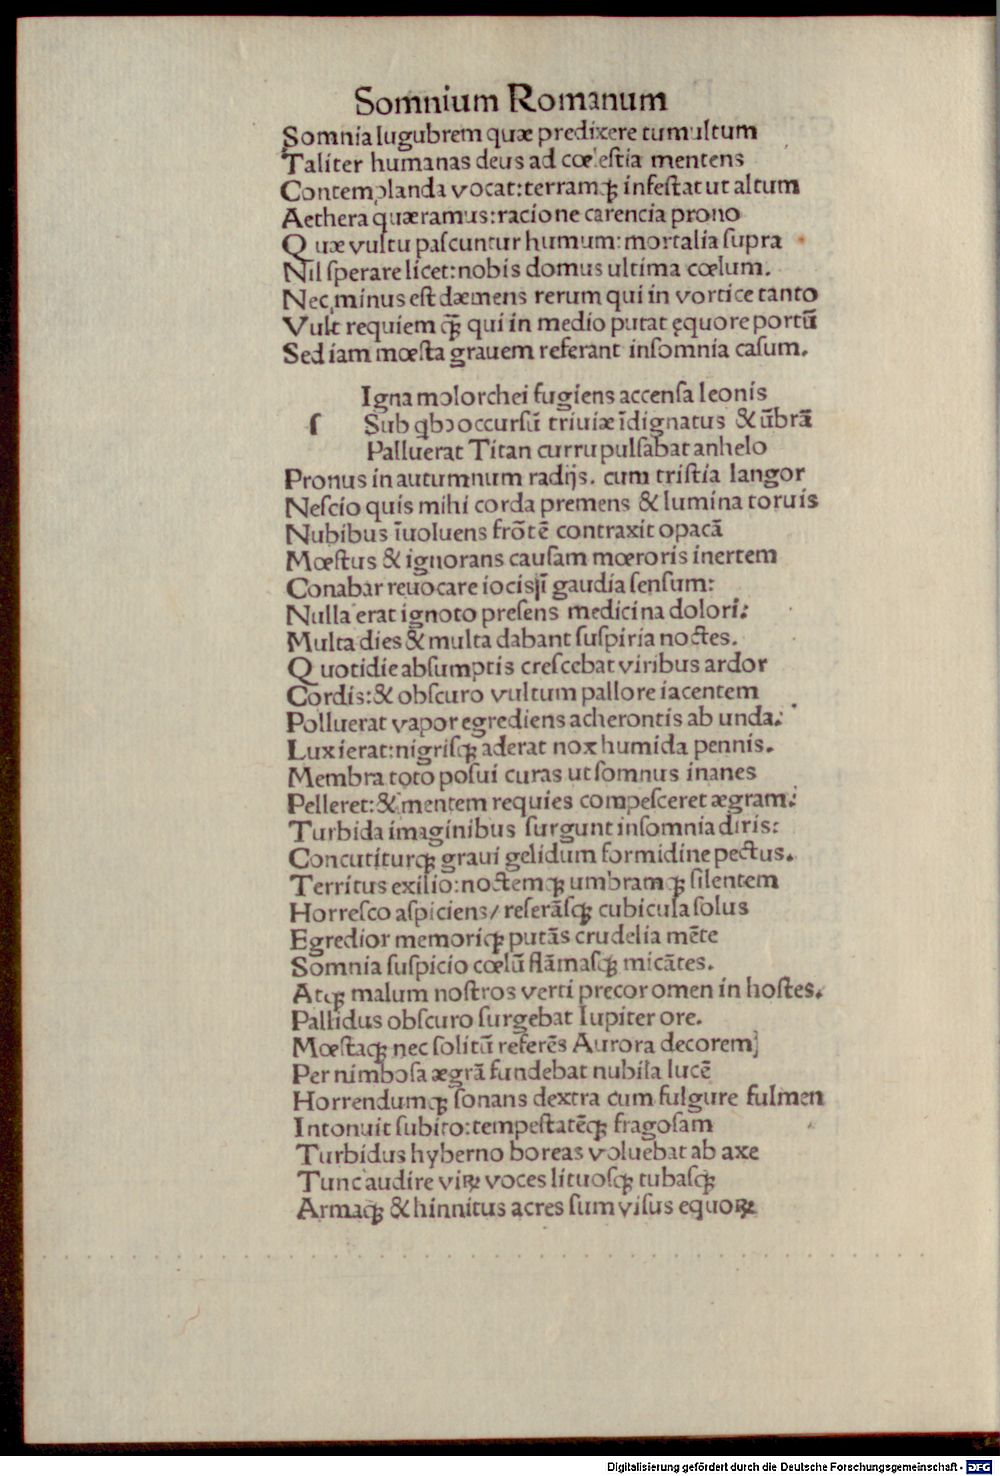 Somnium Romanum
Somnia lugubrem quæ predixere tumultum
Taliter humanas deus ad cœlestia mentens
Contemplanda vocat: terramqꝫ infestat ut altum
Aethera quæramus: racione carencia prono
Quæ vultu pascuntur humum: mortalia supra
Nil sperare licet: nobis domus ultima cœlum.
Nec minus est dæmens rerum qui in vortice tanto
Vult requiem qꝫ̄ qui in medio putat ęquore portū
Sed iam mœsta grauem referant insomnia casum.
Igna molorchei fugiens accensa leonis
ſ Sub qbꝰ occursū triuiæ īdignatus & ūbrā
Palluerat Titan curru pulsabat anhelo
Pronus in autumnum radijs. cum tristia langor
Nescio quis mihi corda premens & lumina toruis
Nubibus īuoluens frōtē contraxit opacā
Mœstus & ignorans causam mœroris inertem
Conabar reuocare iocis īī gaudia sensum:
Nulla erat ignoto presens medicina dolori:
Multa dies & multa dabant suspiria noctes.
Quotidie absumptis crescebat viribus ardor
Cordis: & obscuro vultum pallore iacentem
Polluerat vapor egrediens acherontis ab unda:
Lux ierat: nigrisqꝫ aderat nox humida pennis.
Membra toto posui curas ut somnus inanes
Pelleret: & mentem requies compesceret ægram:
Turbida imaginibus surgunt insomnia diris:
Concutiturqꝫ graui gelidum formidine pectus.
Territus exilio: noctemqꝫ umbramqꝫ silentem
Horresco aspiciens/ referāsqꝫ cubicula solus
Egredior memoriqꝫ putās crudelia mēte
Somnia suspicio cœlū flāmasqꝫ micātes.
Atqꝫ malum nostros verti precor omen in hostes.
Pallidus obscuro surgebat Iupiter ore.
Mœstaqꝫ nec solitū referēs Aurora decorem
Per nimbosa ægrā fundebat nubila lucē
Horrendumqꝫ sonans dextra cum fulgure fulmen
Intonuit subito: tempestatēqꝫ fragosam
Turbidus hyberno boreas voluebat ab axe
Tunc audire viꝝ voces lituosqꝫ tubasqꝫ
Armaqꝫ & hinnitus acres sum visus equoꝝ
Digitalisierung gefördert durch die Deutsche Forschungsgemeinschaft - DFG